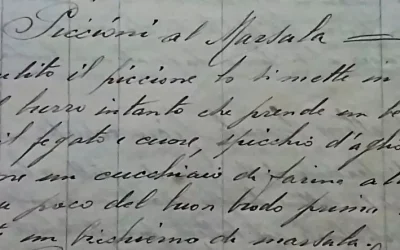 Piccioni al Marsala
pulito il piccione lo si mette in
burro intanto che prende un be
il fegato e cuore, spicchio d'aglio
un cucchiaio di farina a
poco del buon brodo prima
un bicchierino di marsala.